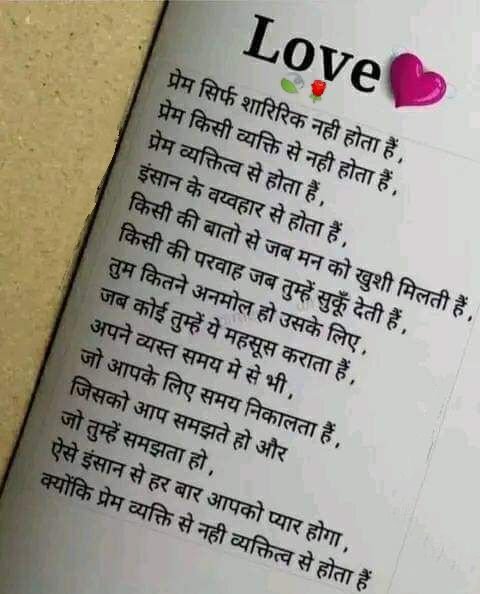 Love
प्रेम सिर्फ शारिरिक नही होता हैं,
प्रेम किसी व्यक्ति से नही होता हैं,
प्रेम व्यक्तित्व से होता हैं,
इंसान के वय्वहार से होता हैं,
किसी की बातो से जब मन को खुशी मिलती हैं,
किसी की परवाह जब तुम्हें सुकूँ देती हैं,
तुम कितने अनमोल हो उसके लिए,
जब कोई तुम्हें ये महसूस कराता हैं,
अपने व्यस्त समय मे से भी,
जो आपके लिए समय निकालता हैं,
जिसको आप समझते हो और
जो तुम्हें समझता हो,
ऐसे इंसान से हर बार आपको प्यार होगा,
क्योंकि प्रेम व्यक्ति से नही व्यक्तित्व से होता हैं